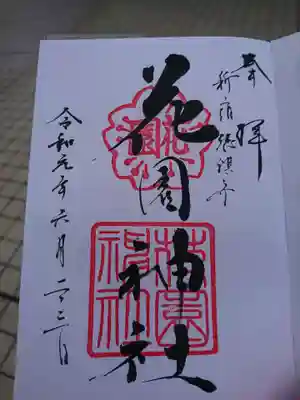 奉拝
新宿総鎮守
花園神社
花園
花園神社
令和元年六月二十二日